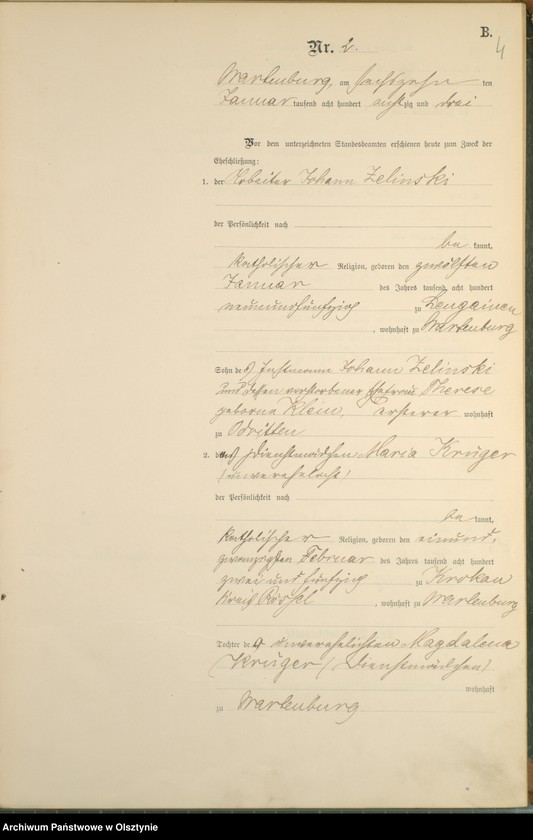 B.
4
Nr. 2.
Wartenburg, am sechszehn ten
Januar tausend acht hundert achtzig und drei
Vor dem unterzeichneten Standesbeamten erschienen heute zum Zweck der
Eheschließung:
1. der Arbeiter Johann Zelinski
der Persönlichkeit nach
be kannt,
katholischer Religion, geboren den zwölften
Januar des Jahres tausend acht hundert
neunundfünfzig zu Lengainen
, wohnhaft zu Wartenburg
Sohn des Instmann Johann Zelinski
und dessen verstorbener Ehefrau Therese
geborne Klein, ersterer wohnhaft
zu Odritten
2. das Dienstmädchen Maria Krüger
(unverehelicht)
der Persönlichkeit nach
be kannt,
katholischer Religion, geboren den einund,
zwanzigsten Februar des Jahres tausend acht hundert
zwei und fünfzig zu Krokau
Kreis Rössel, wohnhaft zu Wartenburg
Tochter der unverehelichten Magdalena
Krüger (Dienstmädchen)
wohnhaft
zu Wartenburg
Archiwum Państwowe w Olsztynie